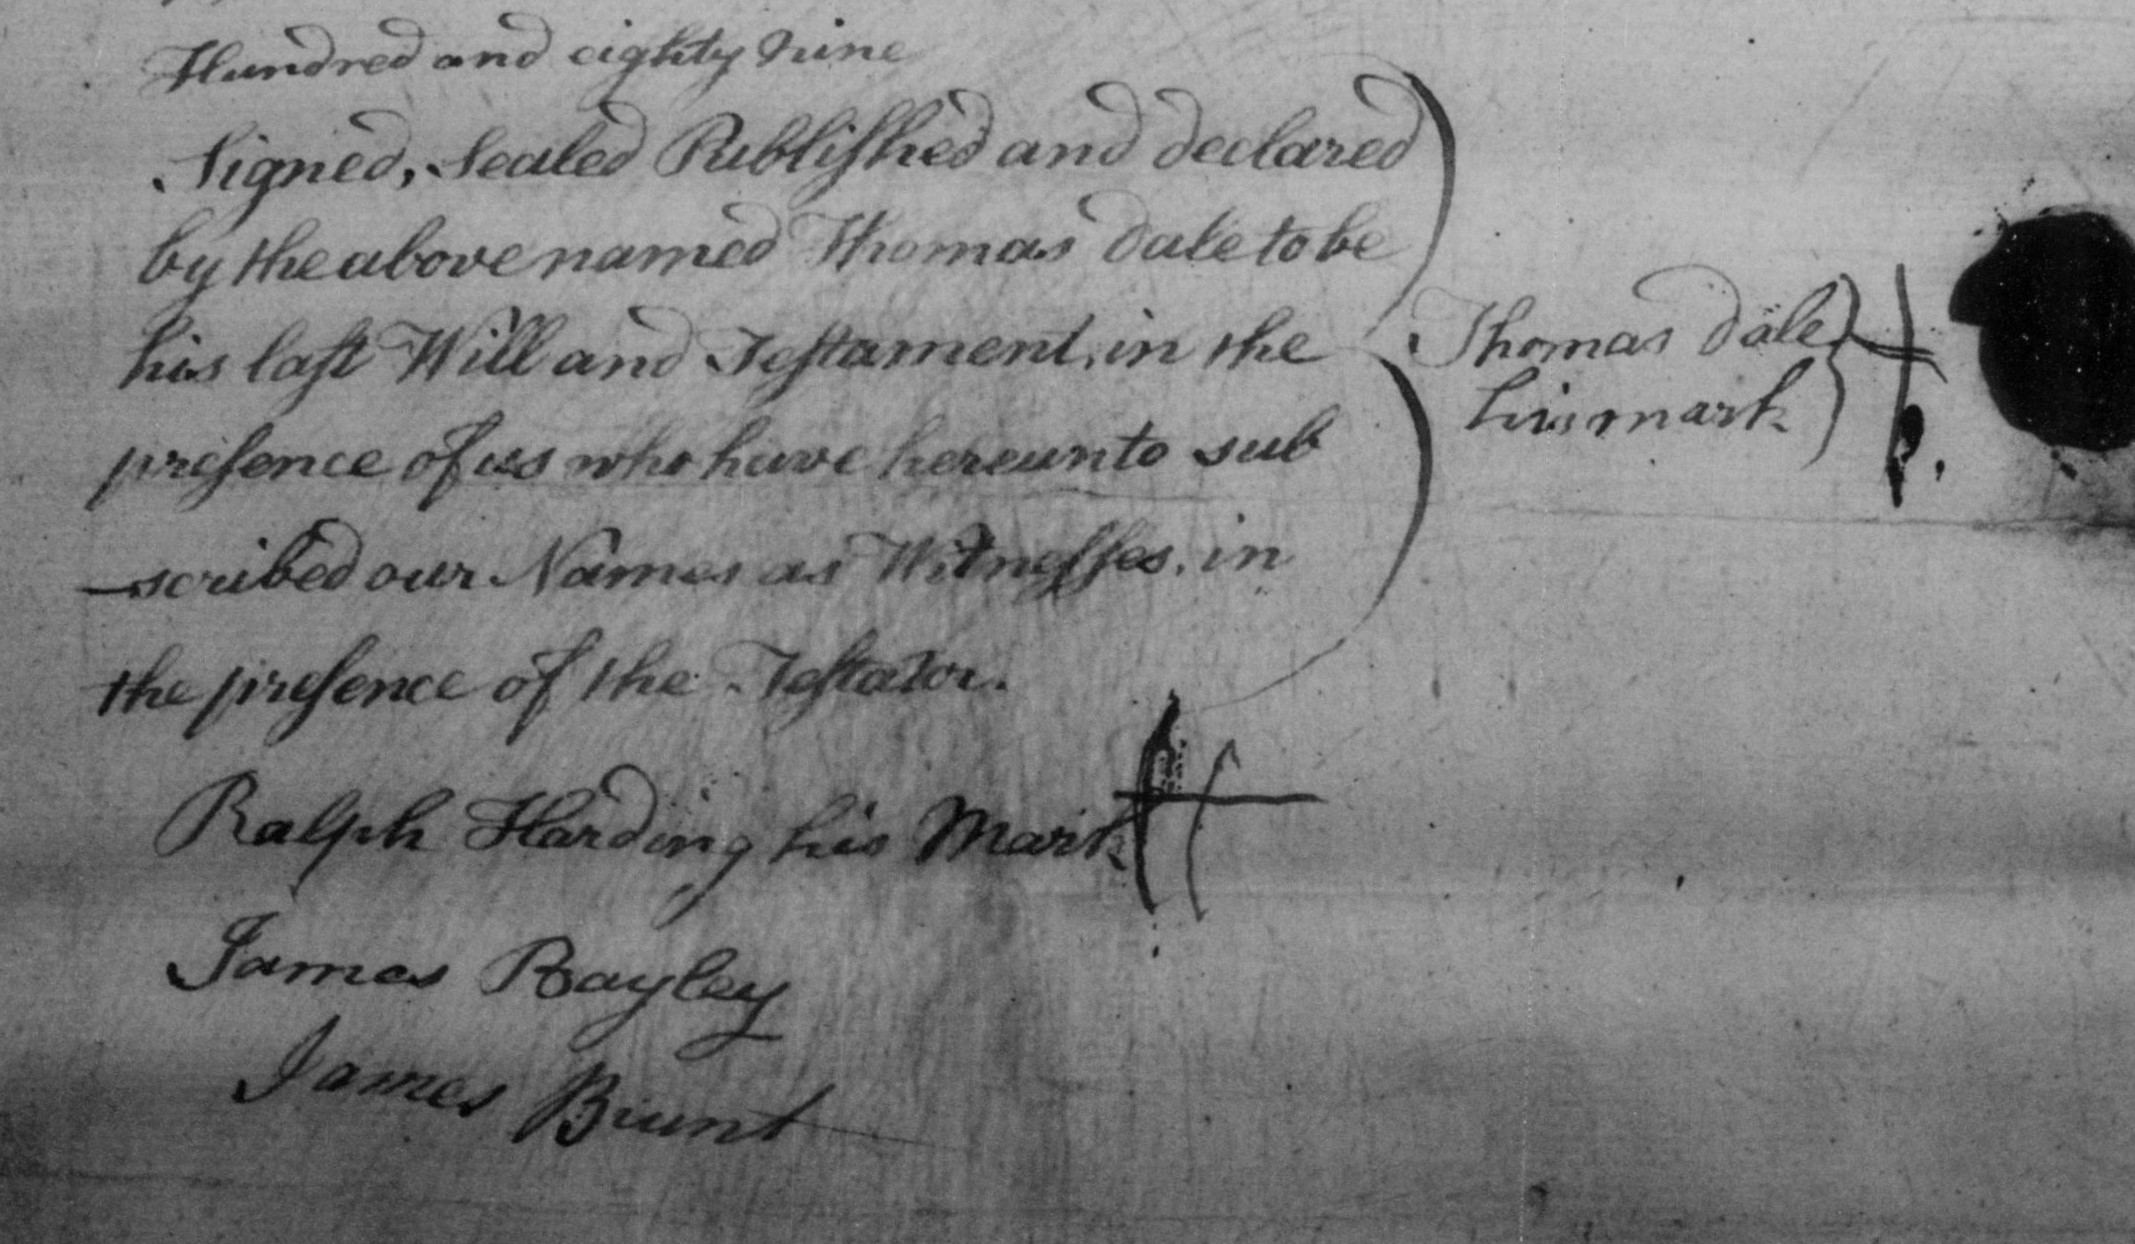 Hundred and eighty nine
Signed, Sealed Publiſhed and declared
by the above named Thomas Dale to be
his laſt Will and Teſtament, in the
preſence of us who have hereunto sub
—scribed our Names as Witneſſes, in
the preſence of the Teſtator.
Thomas Dale
his mark
Ralph Harding his Mark
James Bayley
James Brunt